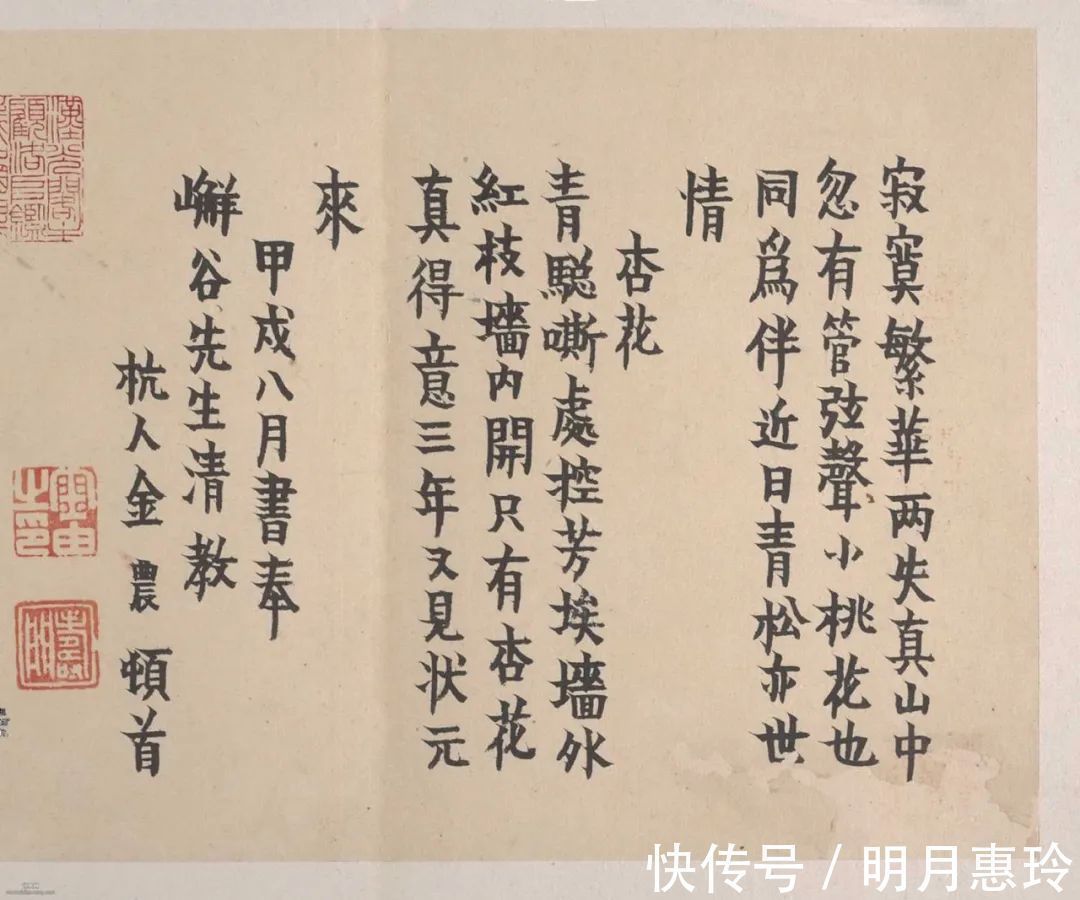 寂寞繁華两失真山中
忽有管弦聲小桃花也
同爲伴近日青松亦世
情
杏花
青驄嘶處控芳埃墻外
紅枝墻内開只有杏花
真得意三年又見状元
來
甲戌八月書奉
嶰谷先生清教
杭人金農頓首
快传号 / 明月惠玲